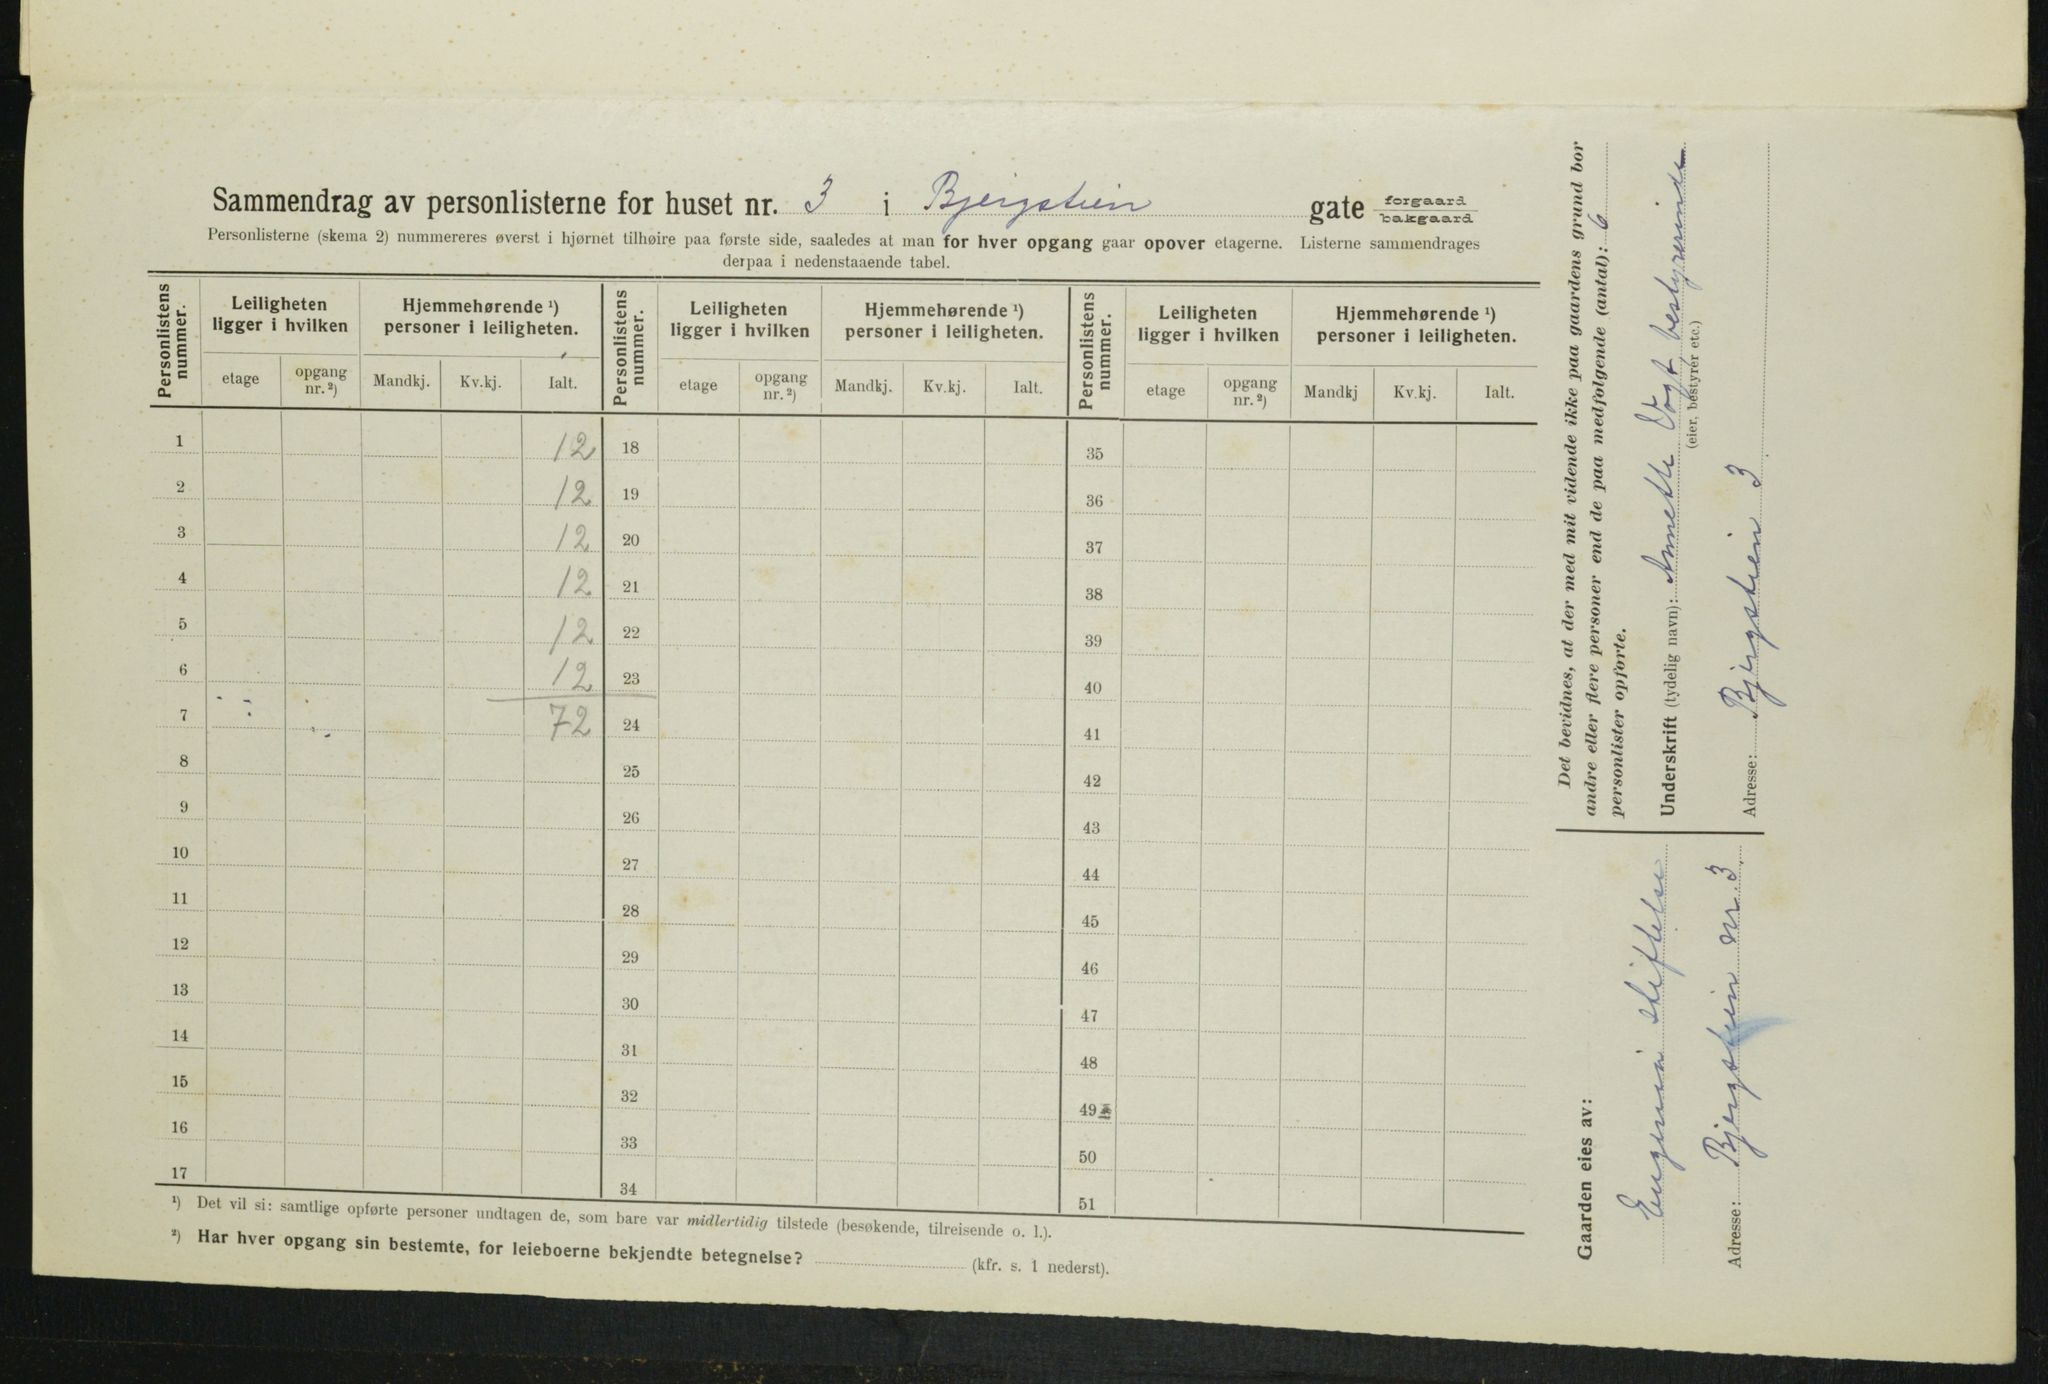 Sammendrag av personlisterne for huset nr. 3 i Bjergstien gate forgaard
bakgaard
Personlisterne (skema 2) nummereres øverst i hjørnet tilhøire paa første side, saaledes at man for hver opgang gaar opover etagerne. Listerne sammendrages
derpaa i nedenstaaende tabel.
Personlistens nummer. Leiligheten ligger i hvilken Hjemmehørende ¹) personer i leiligheten. Personlistens nummer. Leiligheten ligger i hvilken Hjemmehørende ¹) personer i leiligheten. Personlistens nummer. Leiligheten ligger i hvilken Hjemmehørende ¹) personer i leiligheten.
etage opgang nr. ²) Mandkj. Kv.kj. Ialt. etage opgang nr. ²) Mandkj. Kv.kj. Ialt. etage opgang nr. ²) Mandkj Kv.kj. Ialt.
1 12 18 35
2 12 19 36
3 12 20 37
4 12 21 38
5 12 22 39
6 12 23 40
7 72 24 41
8 25 42
9 26 43
10 27 44
11 28 45
12 29 46
13 30 47
14 31 48
15 32 49
16 33 50
17 34 51
¹) Det vil si: samtlige opførte personer undtagen de, som bare var midlertidig tilstede (besøkende, tilreisende o. l.).
²) Har hver opgang sin bestemte, for leieboerne bekjendte betegnelse? (kfr. s. 1 nederst).
Det bevidnes, at der med mit vidende ikke paa gaardens grund bor
andre eller flere personer end de paa medfølgende (antal): 6
personlister opførte.
Underskrift (tydelig navn): Annette Vogt, bestyrerinde
(eier, bestyrer etc.)
Adresse: Bjergstien 3
Gaarden eies av:
Eugenia stiftelse
Adresse: Bjergstien nr. 3